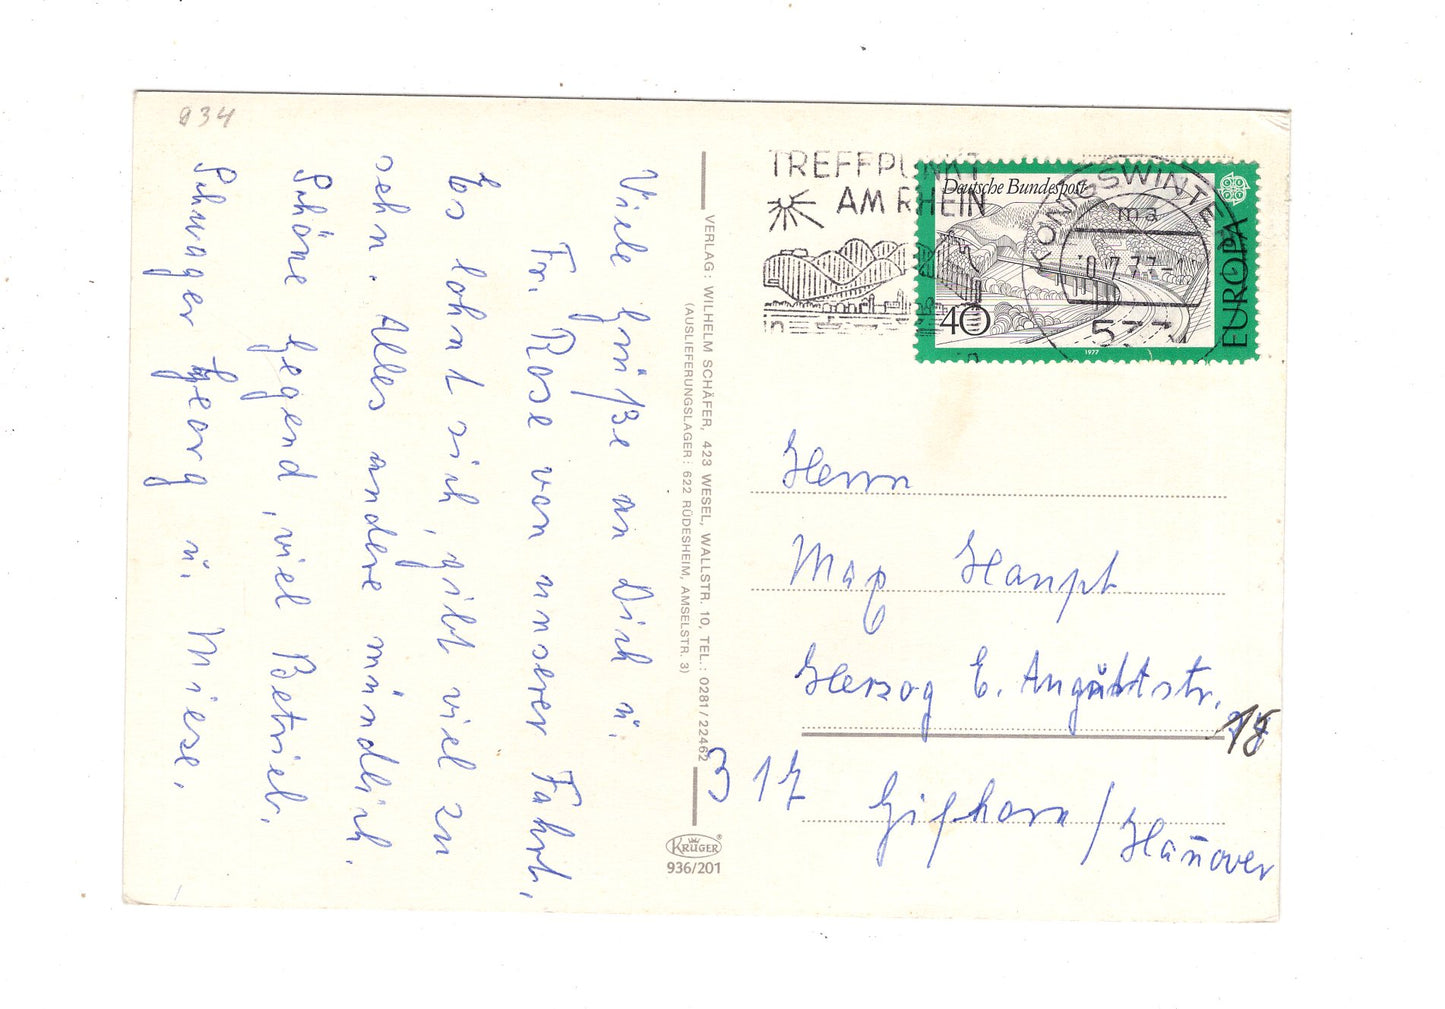 934
Viele Grüße an Dich u.
Fr. Rose von unserer Fahrt.
Es lohnt sich, gibt viel zu
sehn. Alles andere mündlich.
Schöne Gegend, viel Betrieb.
Schwager Georg u. Miese.
VERLAG: WILHELM SCHÄFER, 423 WESEL, WALLSTR. 10, TEL.: 0281/22462
(AUSLIEFERUNGSLAGER: 622 RÜDESHEIM, AMSELSTR. 3)
KRÜGER®
936/201
TREFFPUNKT
AM RHEIN
in
Deutsche Bundespost
40
EUROPA
1977
KÖNIGSWINTER
ma
.7.77-1
533
Herrn
Max Haupt
Herzog E. Auguststr.
18
317 Gifhorn / Hannover